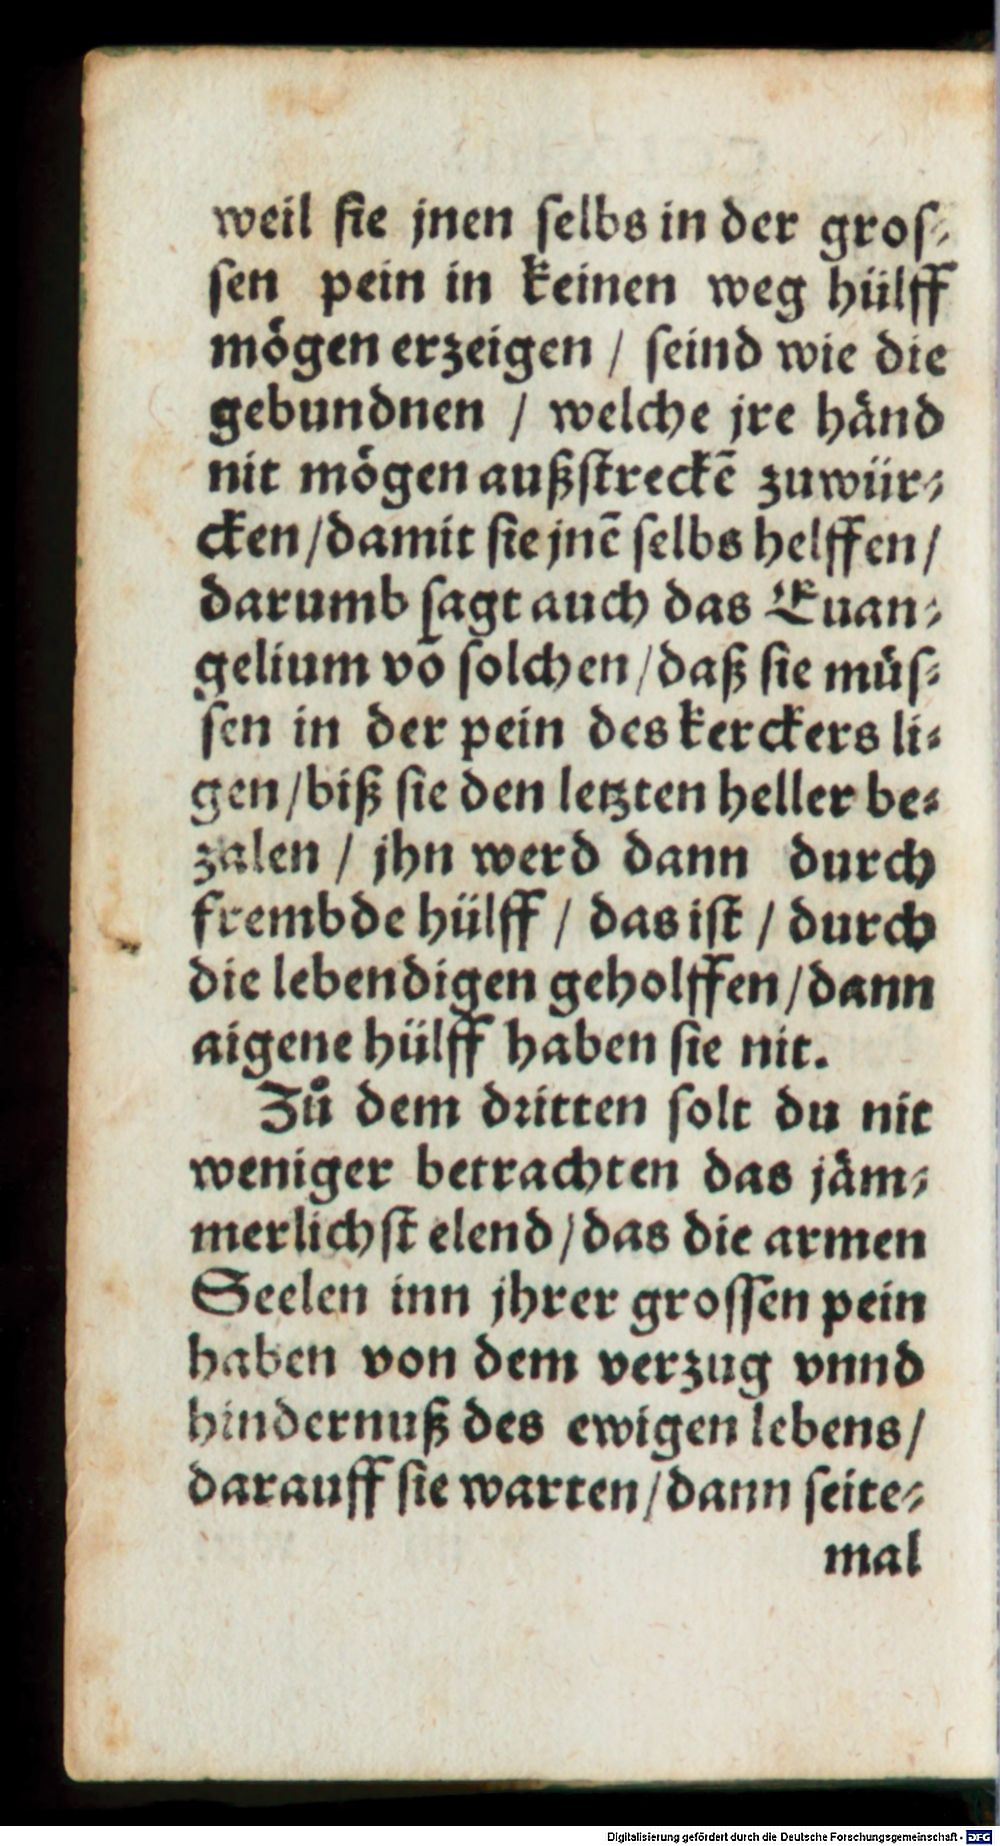 weil ſie jnen ſelbs in der groſ⸗
ſen pein in keinen weg hülff
mögen erzeigen / ſeind wie die
gebundnen / welche jre händ
nit mögen außſtreckē zuwür⸗
cken/damit ſie jnē ſelbs helffen/
darumb ſagt auch das Euan⸗
gelium vō ſolchen/daß ſie müſ⸗
ſen in der pein des kerckers li⸗
gen/biß ſie den letzten heller be⸗
zalen / jhn werd dann durch
frembde hülff / das iſt / durch
die lebendigen geholffen/dann
aigene hülff haben ſie nit.
Zů dem dꝛitten ſolt du nit
weniger betrachten das jäm⸗
merlichſt elend/das die armen
Seelen inn jhrer groſſen pein
haben von dem verzug vnnd
hindernuß des ewigen lebens/
darauff ſie warten/dann ſeite⸗
mal
Digitalisierung gefördert durch die Deutsche Forschungsgemeinschaft - DFG